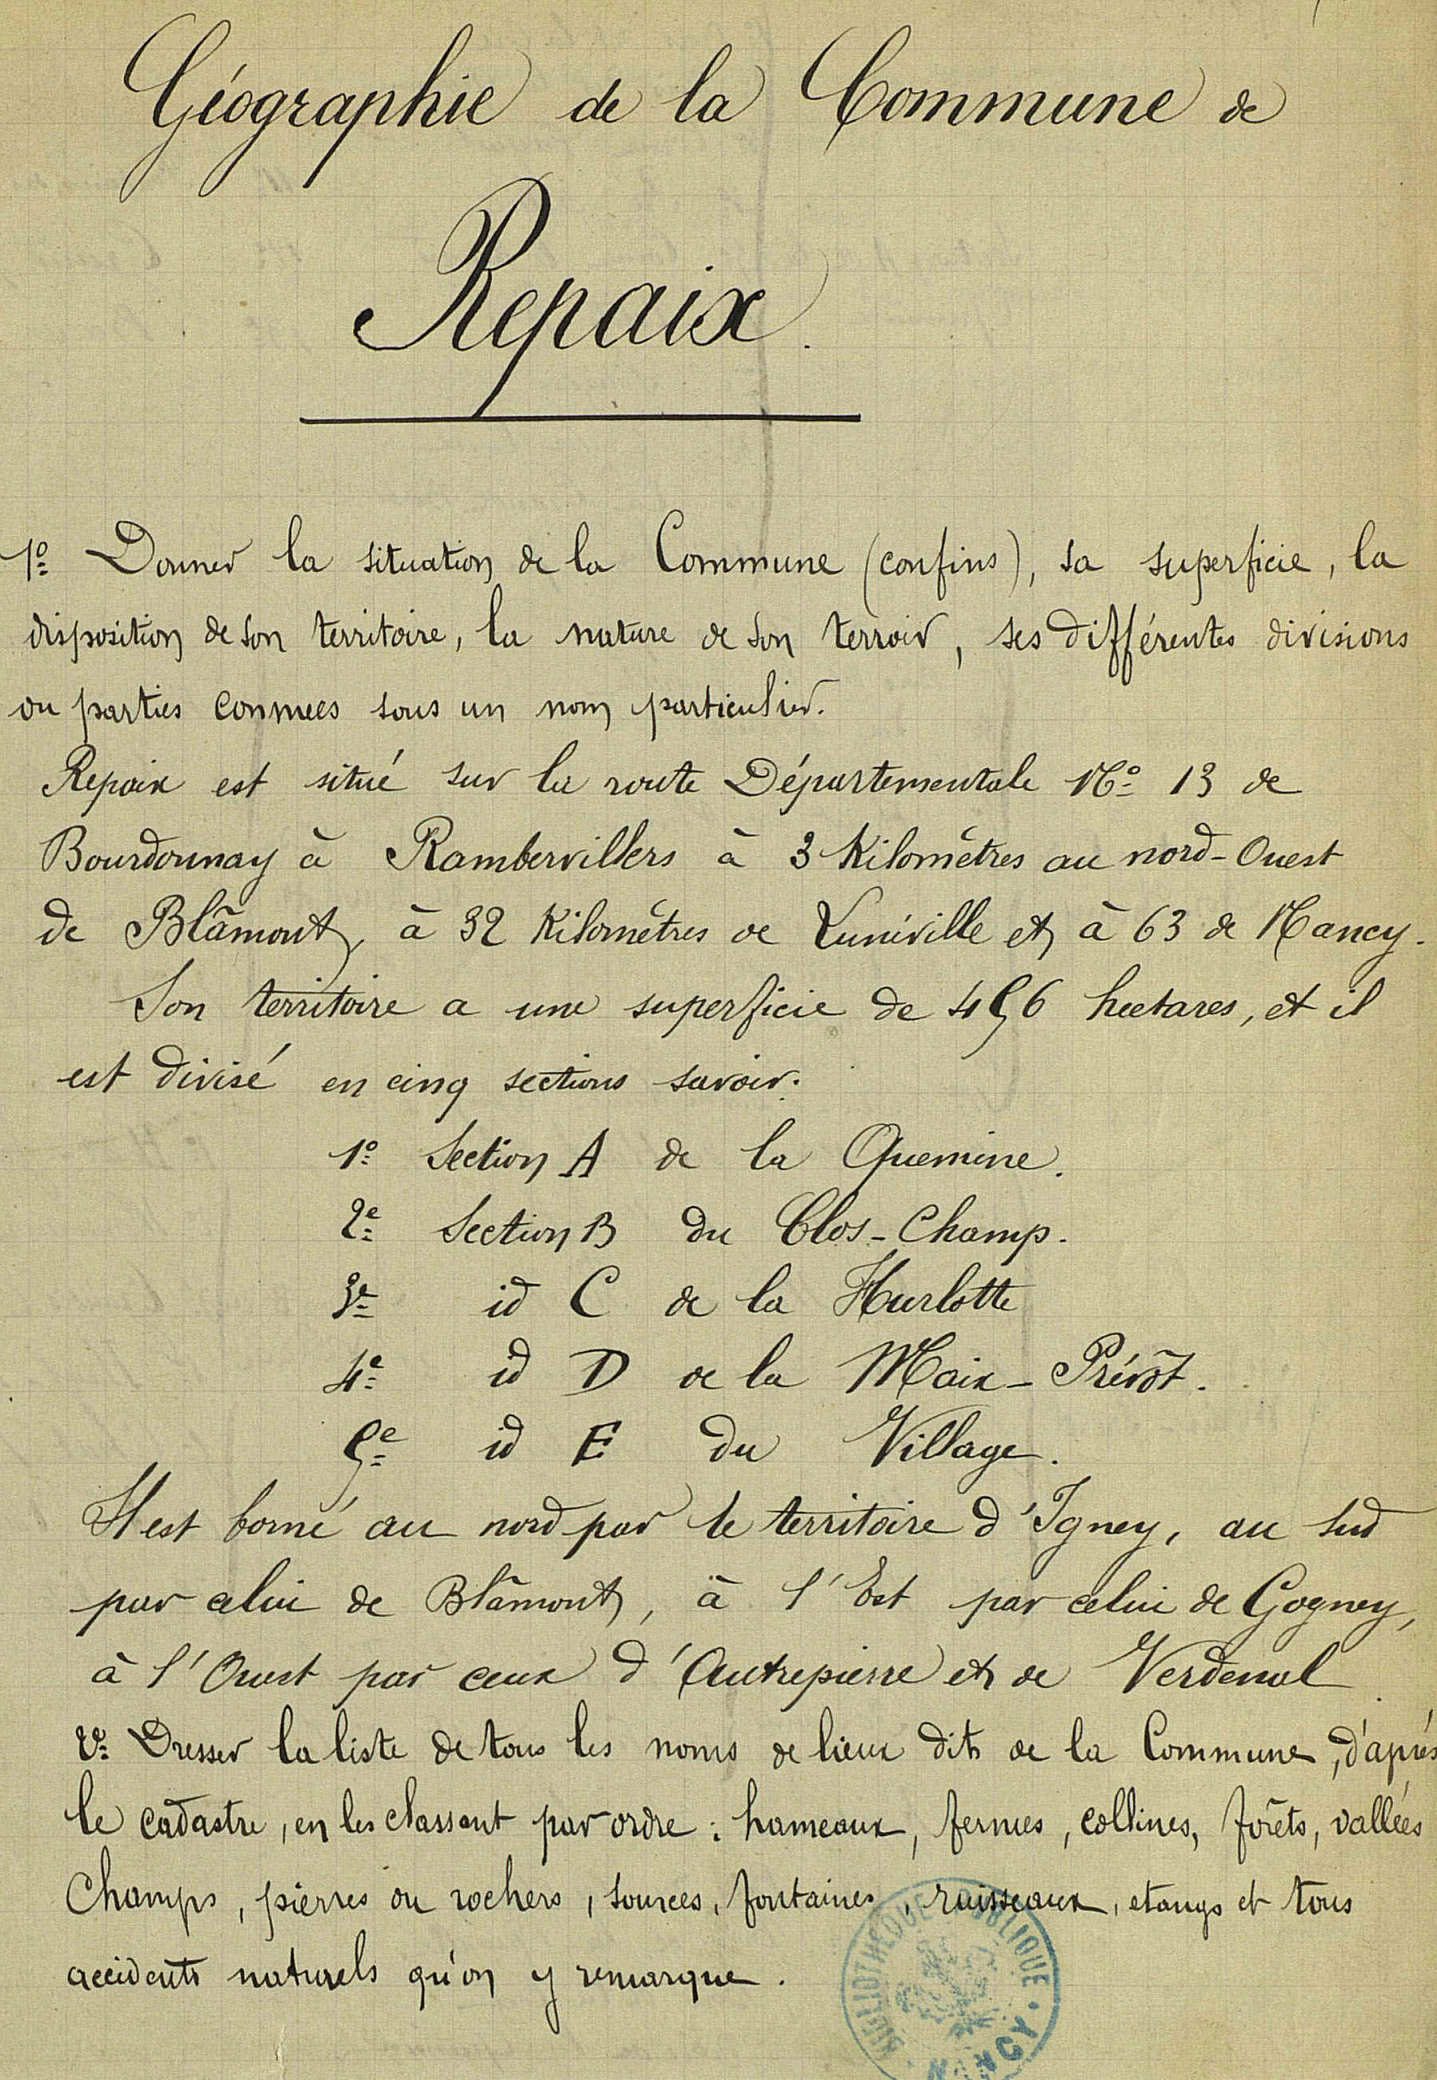 Géographie de la Commune de
Repaix.
1º Donner la situation de la Commune (confins), sa superficie, la
disposition de son territoire, la nature de son terroir, ses différentes divisions
ou parties connues sous un nom particulier.
Repaix est situé sur la route Départementale Nº 13 de
Bourdonnay à Rambervillers à 3 Kilomètres au nord-Ouest
de Blâmont, à 32 Kilomètres de Lunéville et à 63 de Nancy.
Son territoire a une superficie de 456 hectares, et il
est divisé en cinq sections savoir:
1º Section A de la Quemine.
2e Section B du Clos-Champ.
3e id C de la Hurlotte
4e id D de la Maix-Prévôt.
5e id E du Village.
Il est borné au nord par le territoire d'Igney, au sud
par celui de Blâmont, à l'Est par celui de Gogney,
à l'Ouest par ceux d'Autrepierre et de Verdenal.
2º Dresser la liste de tous les noms de lieux dits de la Commune, d'après
le cadastre, en les classant par ordre : hameaux, fermes, collines, forêts, vallées
Champs, pierres ou rochers, sources, fontaines, ruisseaux, etangs et tous
accidents naturels qu'on y remarque.
BIBLIOTHEQUE PUBLIQUE · NANCY ·